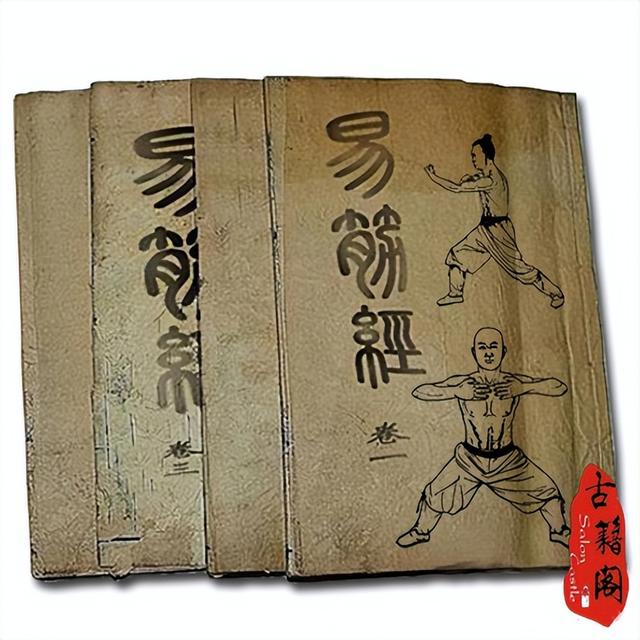 易筋經
卷一
易筋經
卷三
古籍阁
Salon Castle